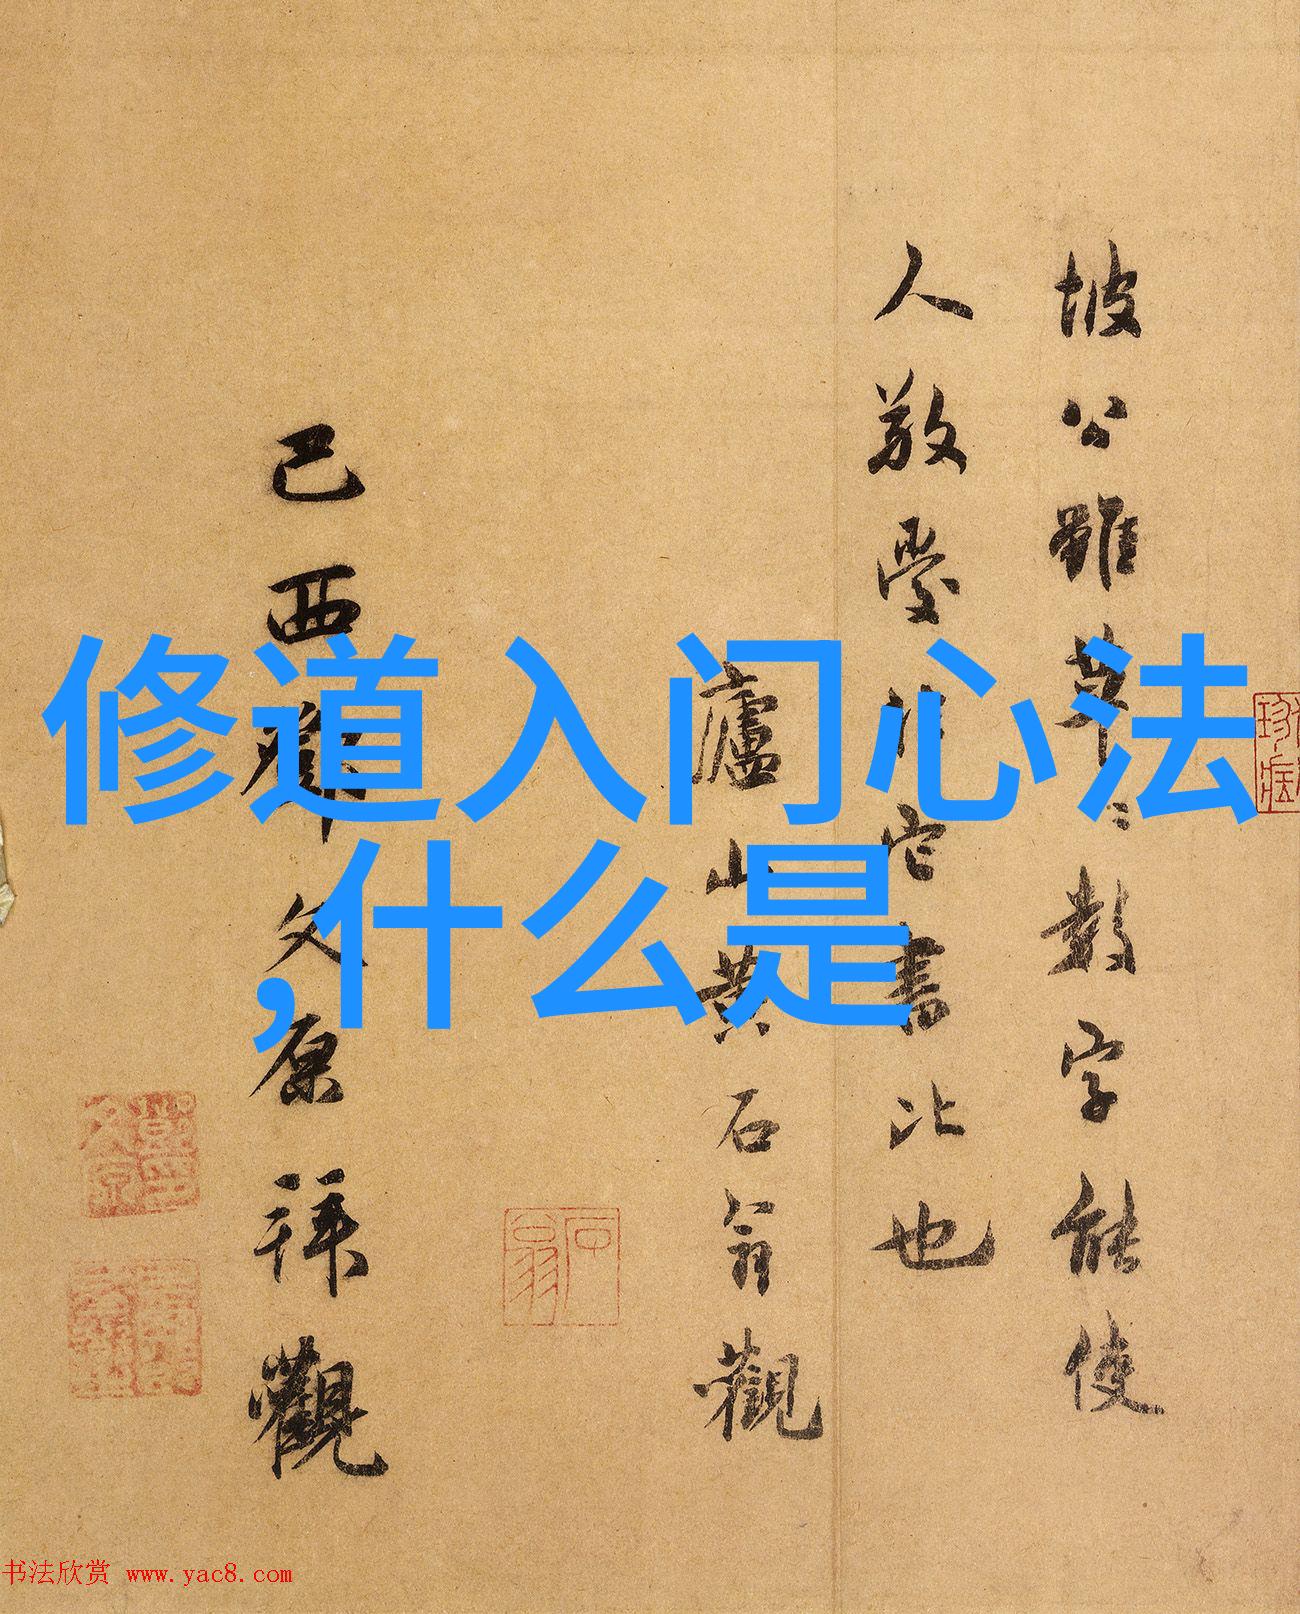 坡公雖草草數字能使
人敬愛
它書比也
廬山黃石翁觀
己酉
文原拜觀
修道入门心法
,什么是
石翁
书法欣赏 www.yac8.com